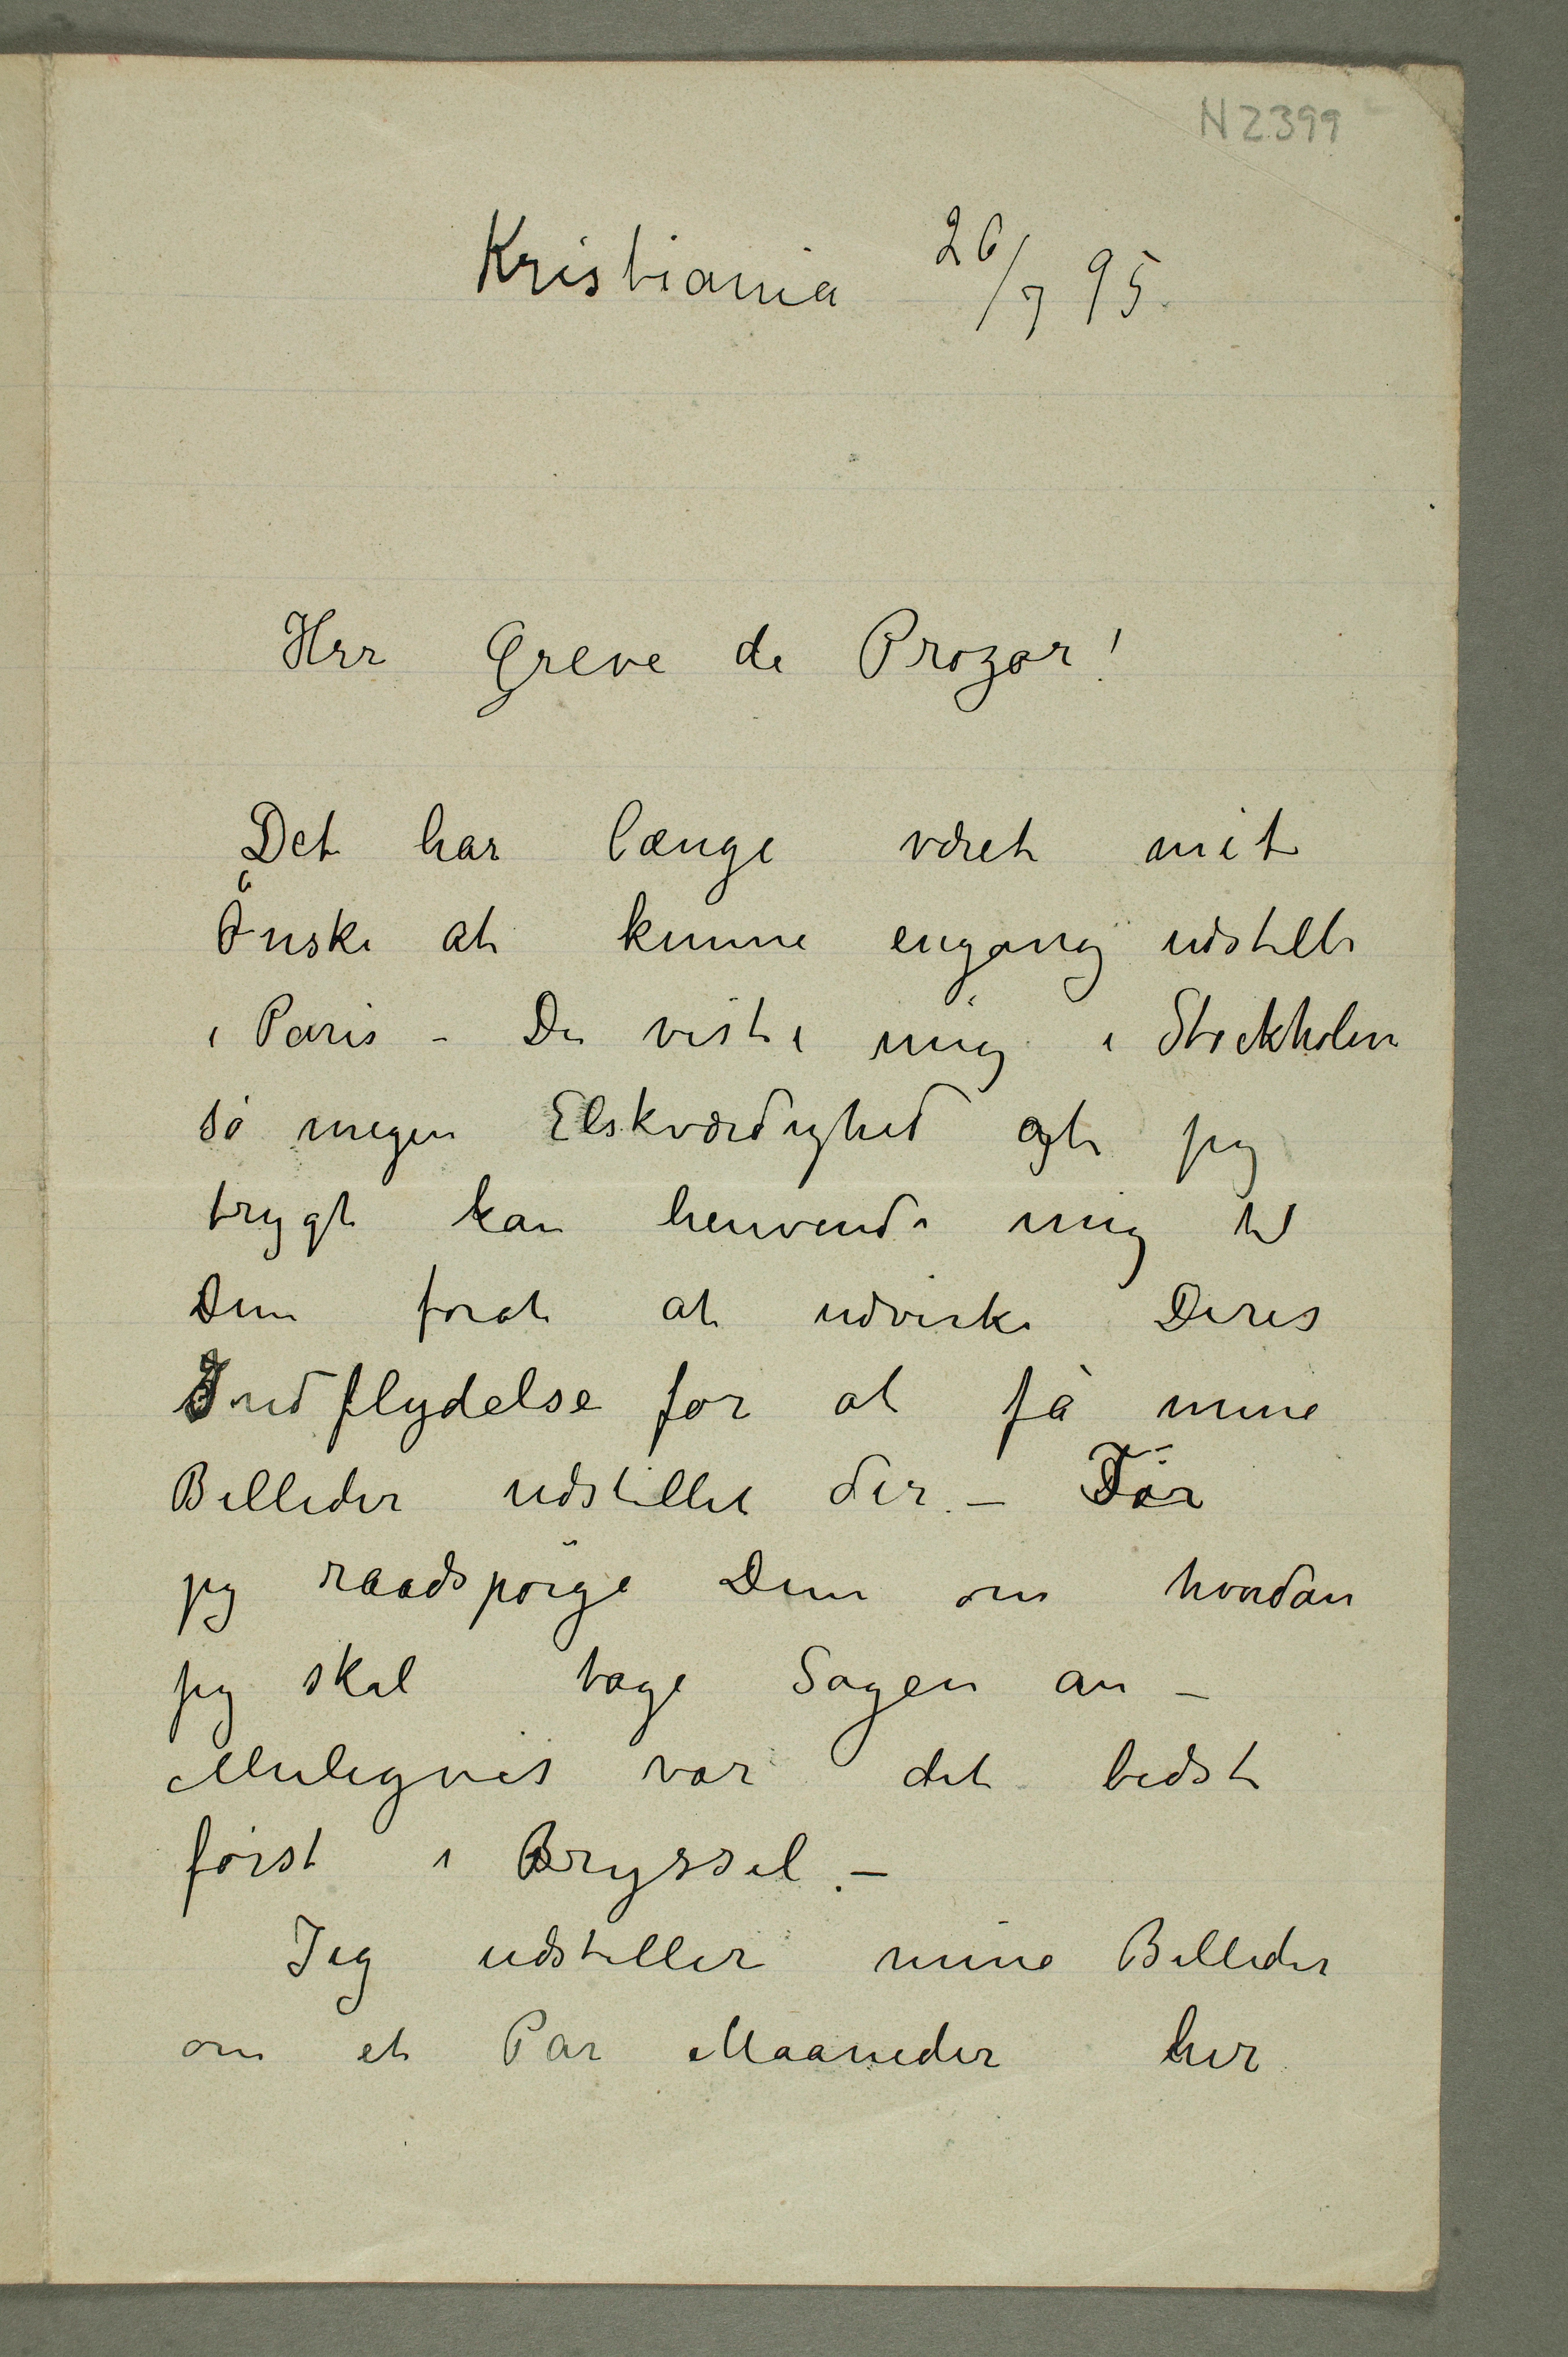 N 2399
Kristiania 26/7 95.
Herr Greve de Prozor!
Det har længe været mit
Önske at kunne engang udstille
i Paris – De viste mig i Stockholm
så megen Elskværdighed at jeg
trygt kan henvende mig til
Dem forat at udvirke Deres
Indflydelse for at få mine
Billeder udstillet der. – Tör
jeg raadspörge Dem om hvordan
jeg skal tage Sagen an –
Muligvis var det bedst
först i Bryssel. –
Jeg udstiller mine Billeder
om et Par Maaneder her